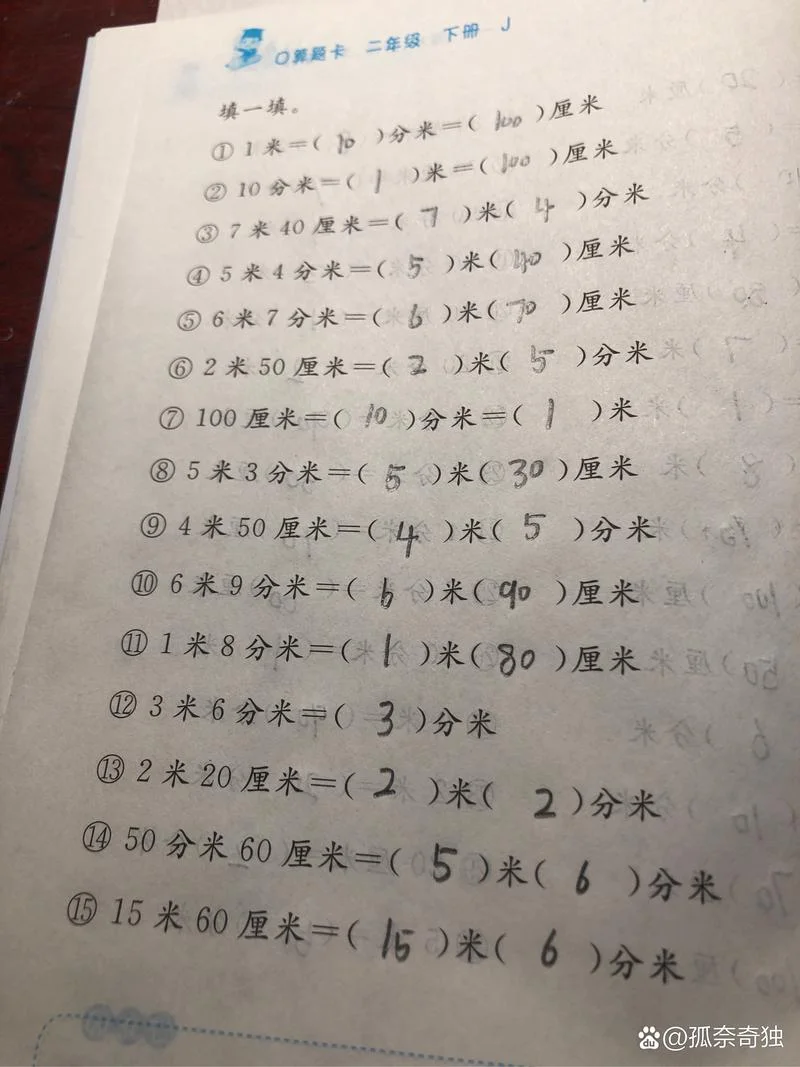 口算题卡 二年级 下册 J
填一填。
① 1米=(10)分米=(100)厘米
② 10分米=(1)米=(100)厘米
③ 7米40厘米=(7)米(4)分米
④ 5米4分米=(5)米(40)厘米
⑤ 6米7分米=(6)米(70)厘米
⑥ 2米50厘米=(2)米(5)分米
⑦ 100厘米=(10)分米=(1)米
⑧ 5米3分米=(5)米(30)厘米
⑨ 4米50厘米=(4)米(5)分米
⑩ 6米9分米=(6)米(90)厘米
⑪ 1米8分米=(1)米(80)厘米
⑫ 3米6分米=(3)分米
⑬ 2米20厘米=(2)米(2)分米
⑭ 50分米60厘米=(5)米(6)分米
⑮ 15米60厘米=(15)米(6)分米
du @孤奈奇独